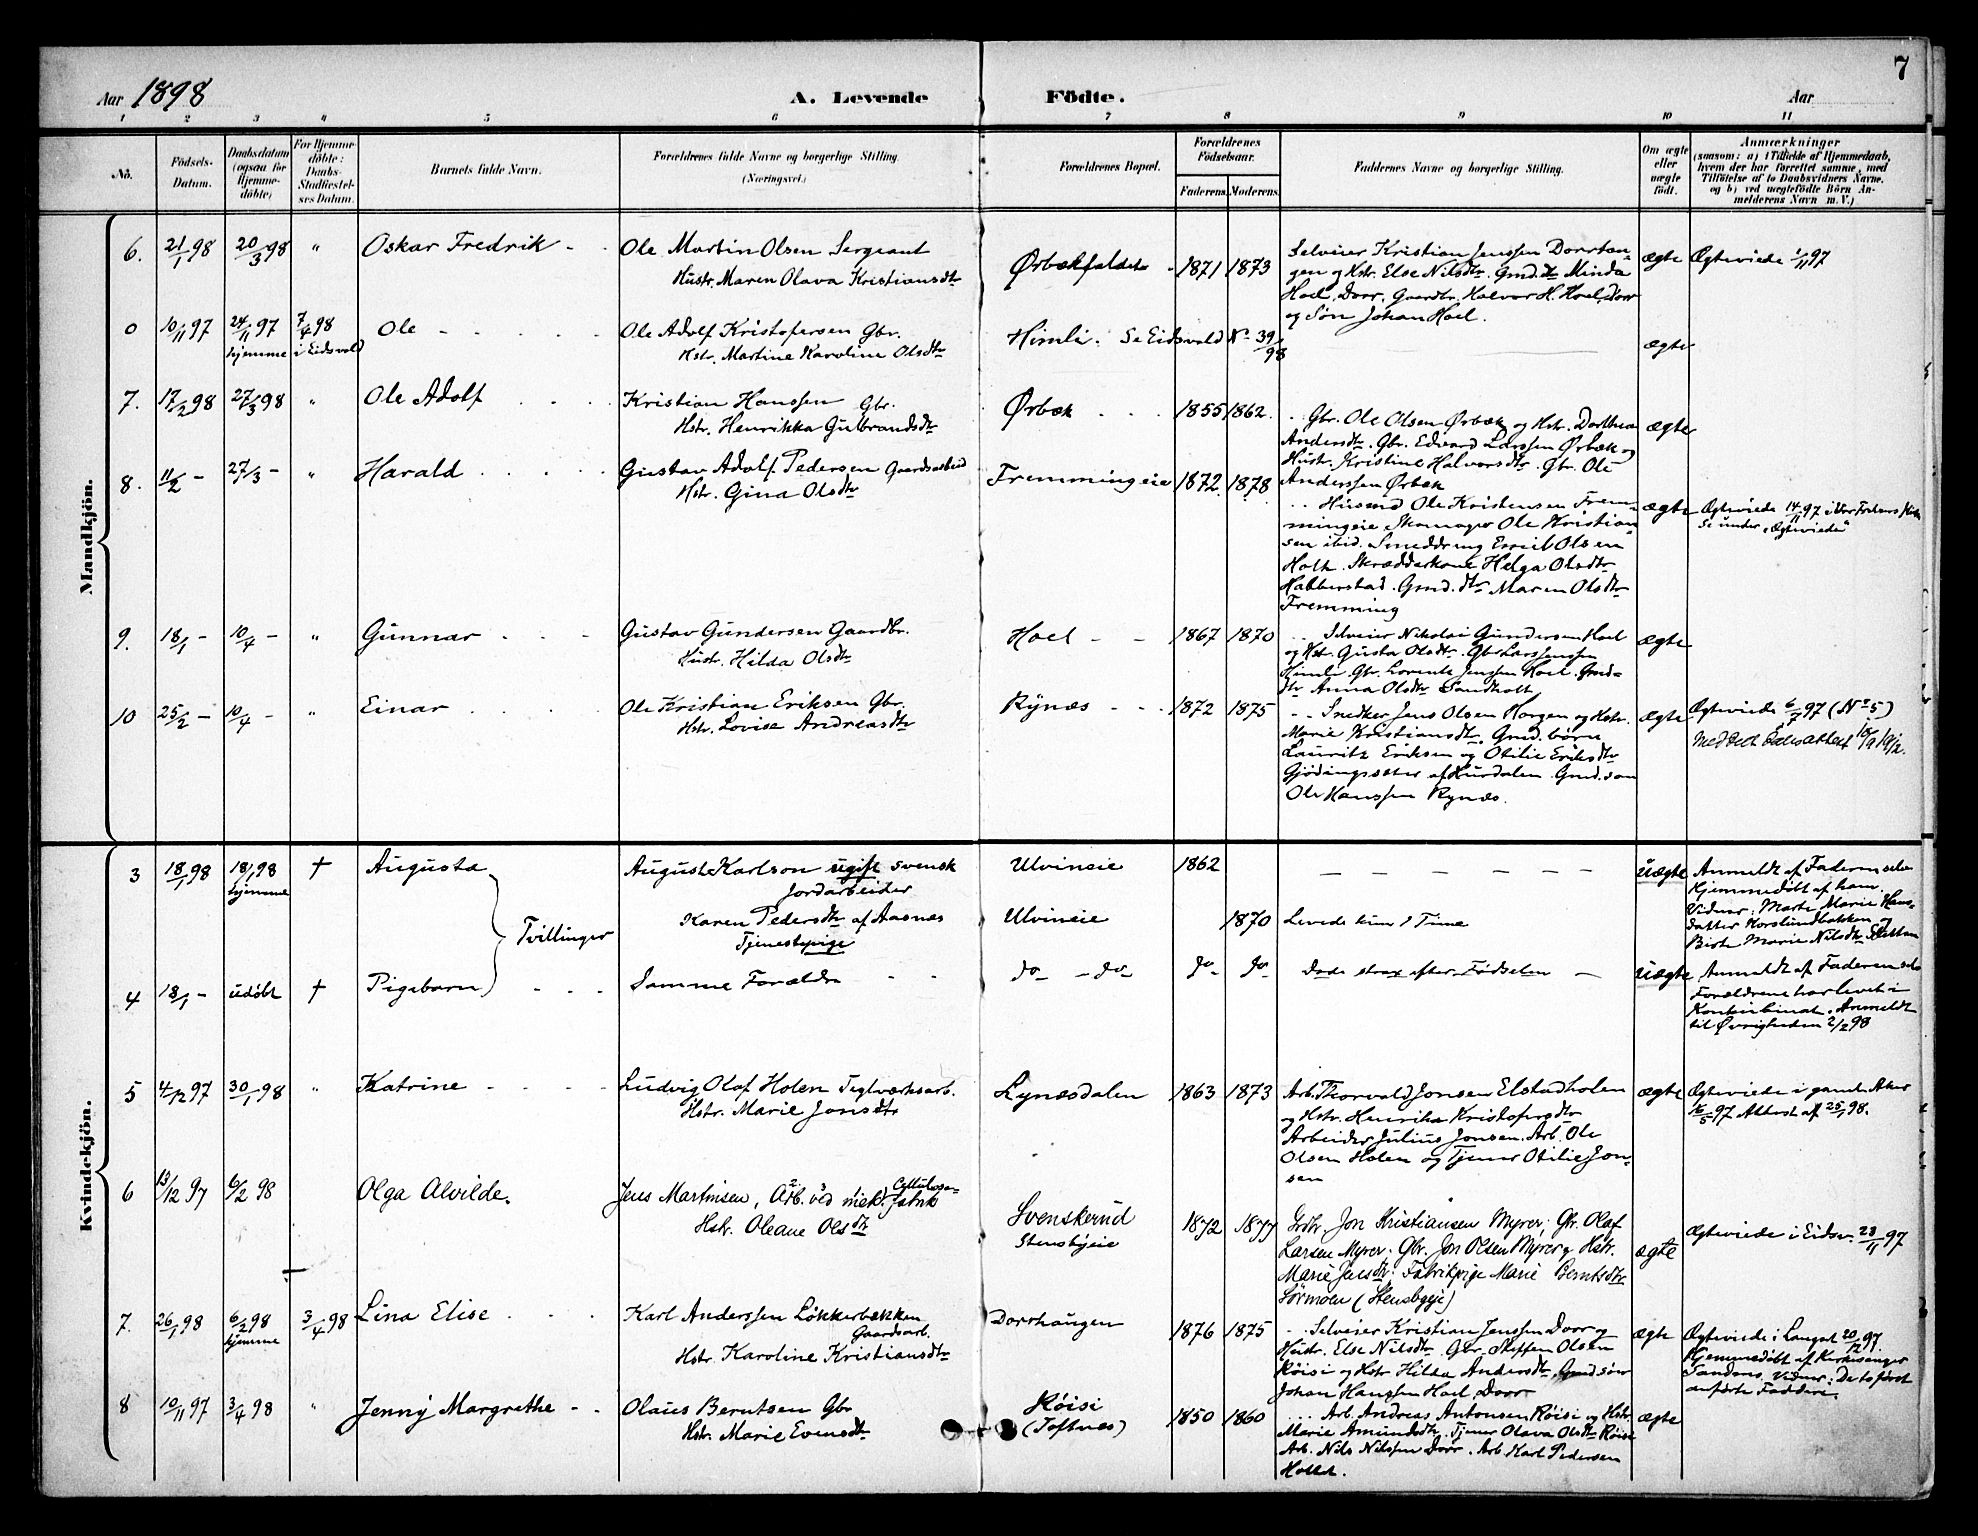 7
Aar 1898
A. Levende Födte.
Aar
1 2 3 4 5 6 7 8 9 10 11
No.
Födsels-Datum.
Daabsdatum (ogsaa for Hjemmedöbte)
For Hjemmedöbte: Daabs-Stadfæstelses Datum.
Barnets fulde Navn.
Forældrenes fulde Navne og borgerlige Stilling. (Næringsvei.)
Forældrenes Bopæl.
Forældrenes Födselsaar.
Faderens. Moderens.
Faddernes Navne og borgerlige Stilling.
Om ægte eller uægte födt.
Anmærkninger
(saasom: a) i Tilfælde af Hjemmedaab,
hvem der har forrettet samme, med
Tilföielse af to Daabsvidners Navne.
og b) ved uægtefödte Börn An-
melderens Navn m. V.)
Mandkjön.
6. 21/1 98 20/3 98 " Oskar Fredrik - -
Ole Martin Olsen Sergeant
Hustr. Maren Olava Kristiansdtr
Ørbækfaldet 1871 1873
Selveier Kristian Jenssen Dorrtan-
gen og Hstr. Else Nilsdtr. Gmd.dtr Minda
Hoel, Dorr. Gaardbr. Halvor H. Hoel, Dorr
og Søn Johan Hoel.
ægte
Ægteviede 1/11 97
0 10/11 97 24/11 97 hjemme 7/4 98 i Eidsvold
Ole - - - -
Ole Adolf Kristofersen Gbr.
Hstr. Martine Karoline Olsdtr
Himli. Se Eidsvold No 39/98
ægte
7. 17/2 98 27/3 98 " Ole Adolf
Kristian Hanssen Gbr.
Hstr. Henrikka Gulbrandsdtr
Ørbæk 1855 1862.
Gbr. Ole Olsen Ørbæk og Hstr. Dorthea
Andersdtr. Gbr. Edvard Larssen Ørbæk og
Hustr. Kristine Halvorsdtr. Gbr. Ole
Anderssen Ørbæk
ægte
8. 11/2 - 27/3 - " Harald
Gustav Adolf Pedersen Gaardsarbeid
Hstr. Gina Olsdtr
Fremmingeie 1872 1878
Husmd Ole Kristensen Frem-
mingeie, Skomager Ole Kristian
sen ibid. Smeddreng Emil Olsen
Holt. Skrædderkone Helga Olsdtr
Habberstad. Gmd.dtr Maren Olsdtr
Fremming
ægte
Ægteviede 14/11 97 i Vor Frelsers Kirke
Se under "Ægteviede"
9. 18/1 - 10/4 - " Gunnar
Gustav Gundersen Gaardbr.
Hustr. Hilda Olsdtr
Hoel - - 1867 1870
Selveier Nikolai Gundersen Hoel
og Hst. Gusta Olsdtr. Gbr Lars Jenssen
Himli Gbr. Lorents Jenssen Hoel. Gmd-
dtr. Anna Olsdtr Sandholt
ægte
10 25/2 - 10/4 - " Einar
Ole Kristian Eriksen Gbr.
Hstr. Lovise Andreasdtr
Rynæs 1872 1875
Snedker Jens Olsen Horgen og Hstr.
Marie Kristiansdtr. Gmd. børn
Lauritz Eriksen og Otilie Eriksdtr
Gjødingseter af Hurdalen. Gmd.søn
Ole Hanssen Rynæs.
ægte
Ægteviede 6/7 97 (No 5)
Kvindekjön.
3 18/1 98 18/1 98 hjemme † Augusta
August Karlson ugift svensk
Jordarbeider
Karen Pedersdtr af Aasnæs
Tjenestepige
Tvillinger
Ulvineie 1862
Ulvineie 1870
Levede kun 1 Time
uægte
Anmeldt af Faderen selv
Hjemmedøbt af ham.
Vidner: Marte Marie Hans-
datter Korslundbakken og
Birte Marie Nilsdtr
4 18/1 - udøbt † Pigebarn
Samme Forældre
do - do do do
Døde strax efter Fødselen
uægte
Anmeldt af Faderen selv
Forældrene har levet i
Konkubinat. Anmeldt
til Øvrigheden 2/2 98
5 4/12 97 30/1 98 " Katrine
Ludvig Olaf Holen Teglværksarb.
Hstr. Marie Jonsdtr
Lynæsdalen 1863 1873
Arb. Thorvald Jonsen Elstadholen
og Hstr. Henrikka Kristofersdtr
Arbeider Julius Jonsen. Arb. Ole
Olsen Holen og Tjener Otilie Jon-
sen
ægte
Ægteviede i gamle Aker
16/5 97 Attest af 25/1 98.
6 13/12 97 6/2 98 Olga Alvilde.
Jens Martinsen, Arb. ved mek. Cellulose-fabrik
Hstr. Oleane Olsdtr
Svenskerud
Stensbyeie
1872 1877
Grbr. Jon Kristiansen Myrer; Gbr. Olaf
Larsen Myrer; Gbr. Jon Olsen Myrer og Hstr.
Marie Jensdtr; Fabrikpige Marie Berntsdtr
Sørmoen (Stensbyeje)
ægte
Ægteviede i Eidsv. 28/11 97
7. 26/1 98 6/2 98 hjemme 3/4 98 Lina Elise
Karl Anderssen Løkkerbækken
Gaardsarb.
Hstr. Karoline Kristiansdtr
Dorrhaugen 1876 1875
Selveier Kristian Jenssen Dorr og
Hustr. Else Nilsdtr. Gbr. Steffen Olsen
Røisi og Hstr Hilda Andersdtr, Gmd.søn
Johan Hanssen Hoel, Dorr
ægte
Ægteviede i Langset 20/12 97.
Hjemmedøbt af Kirkesanger
Sandnes. Vidner: De to først
anførte Faddere.
8 10/11 97 3/4 98 " Jenny Margrethe - -
Olaus Berntsen Gbr
Hstr. Marie Evensdtr
Røisi
(Toftnes)
1850 1860
Arb. Andreas Antonsen Røisi og Hstr.
Marie Amundsdtr. Tjener Olava Olsdtr Røisi
Arb. Nils Nilssen Dorr. Arb. Karl Pedersen
Holtet.
ægte